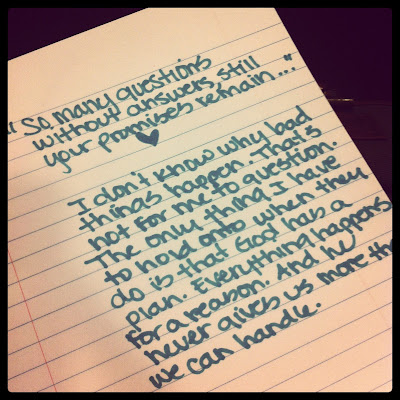 "So many questions
without answers, still
your promises remain..."
I don't know why bad
things happen. That's
not for me to question.
The only thing I have
to hold onto when they
do is that God has a
plan. Everything happens
for a reason. And he
never gives us more tha
we can handle.